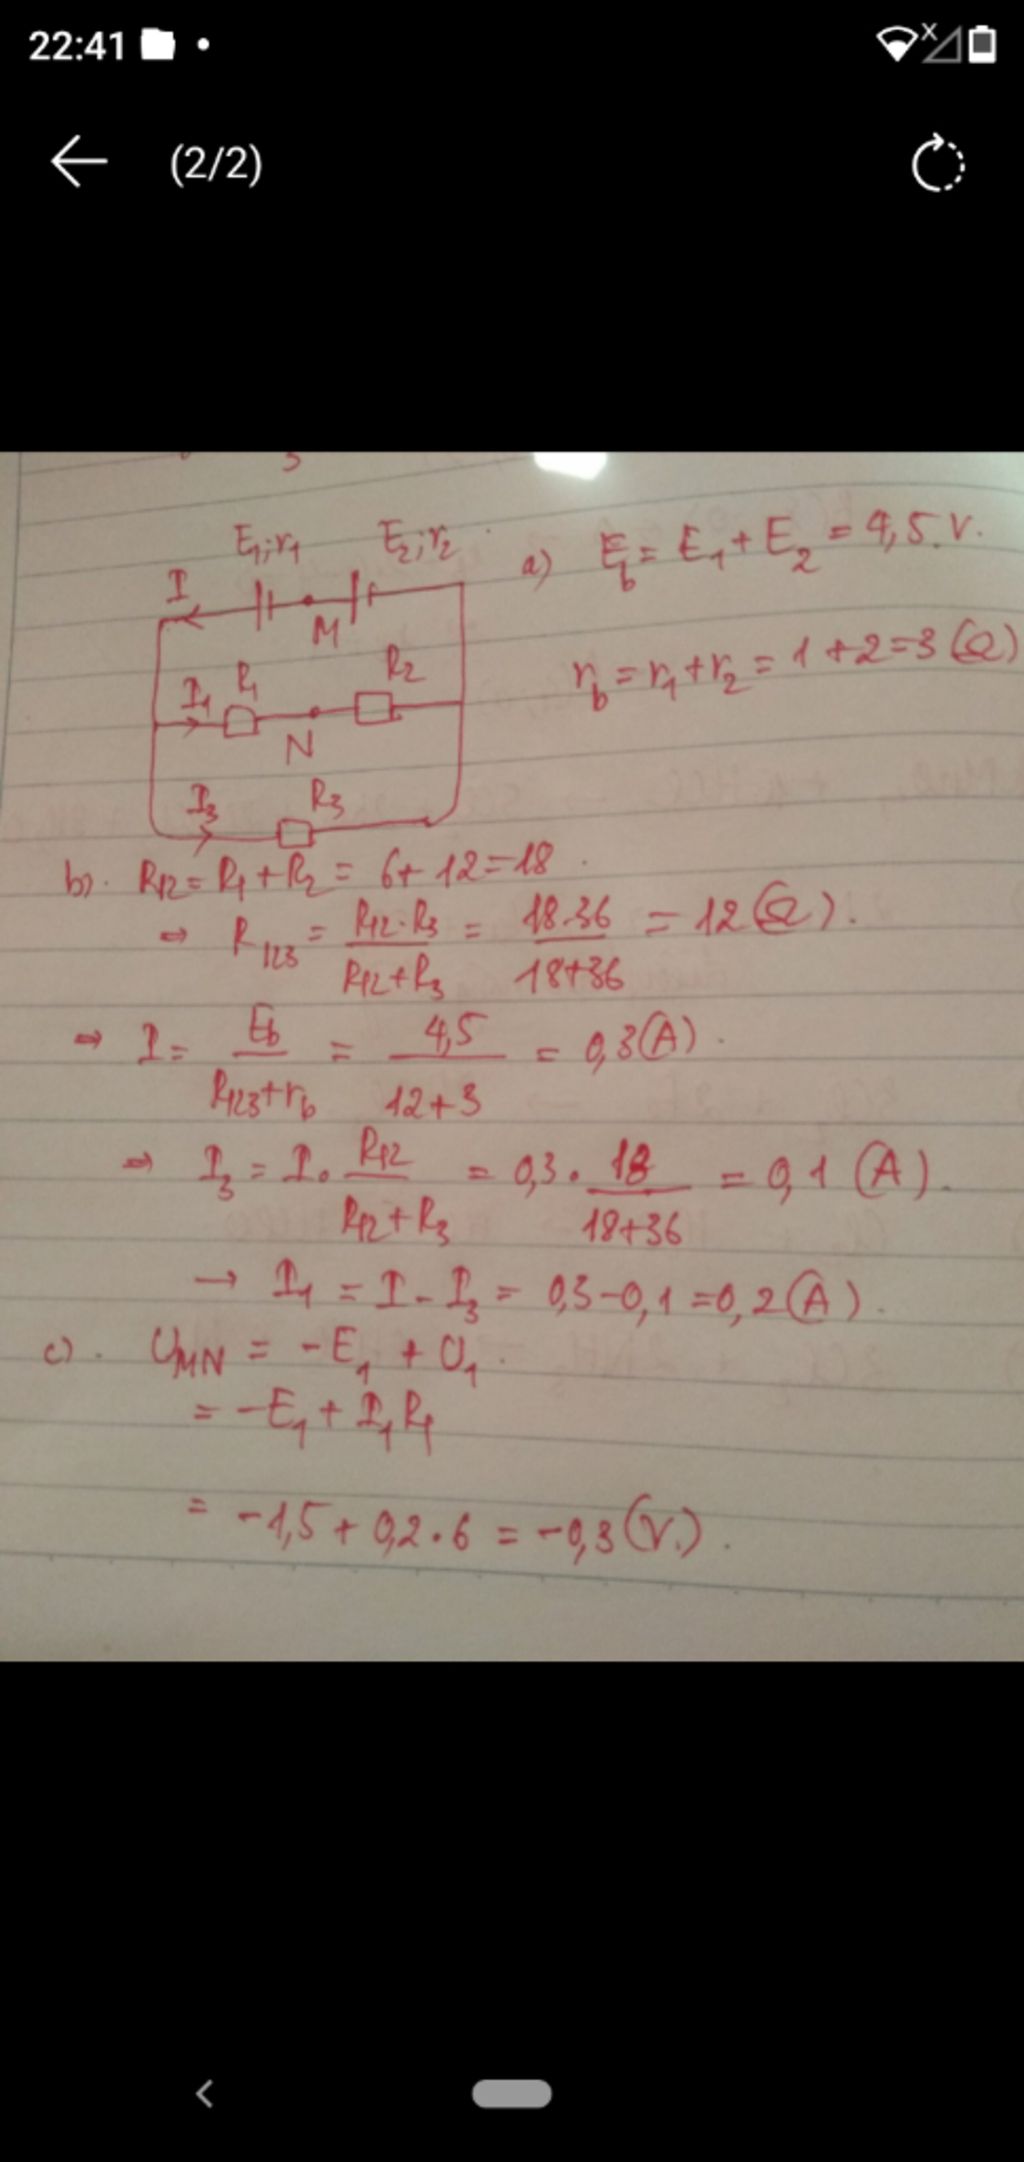 22:41
(2/2)
E₁;r₁ E₂;r₂
I
M
R₁ R₂
I₁
N
I₃ R₃
a) E_b = E₁ + E₂ = 4,5.V.
r_b = r₁ + r₂ = 1 + 2 = 3 (Ω)
b). R₁₂ = R₁ + R₂ = 6 + 12 = 18.
⇒ R₁₂₃ = R₁₂.R₃ / R₁₂ + R₃ = 18.36 / 18+36 = 12 (Ω).
⇒ I = E_b / R₁₂₃ + r_b = 4,5 / 12 + 3 = 0,3 (A).
⇒ I₃ = I . R₁₂ / R₁₂ + R₃ = 0,3 . 18 / 18+36 = 0,1 (A).
→ I₁ = I - I₃ = 0,3 - 0,1 = 0,2 (A).
c). U_MN = -E₁ + U₁.
= -E₁ + I₁R₁
= -1,5 + 0,2.6 = -0,3 (V.).